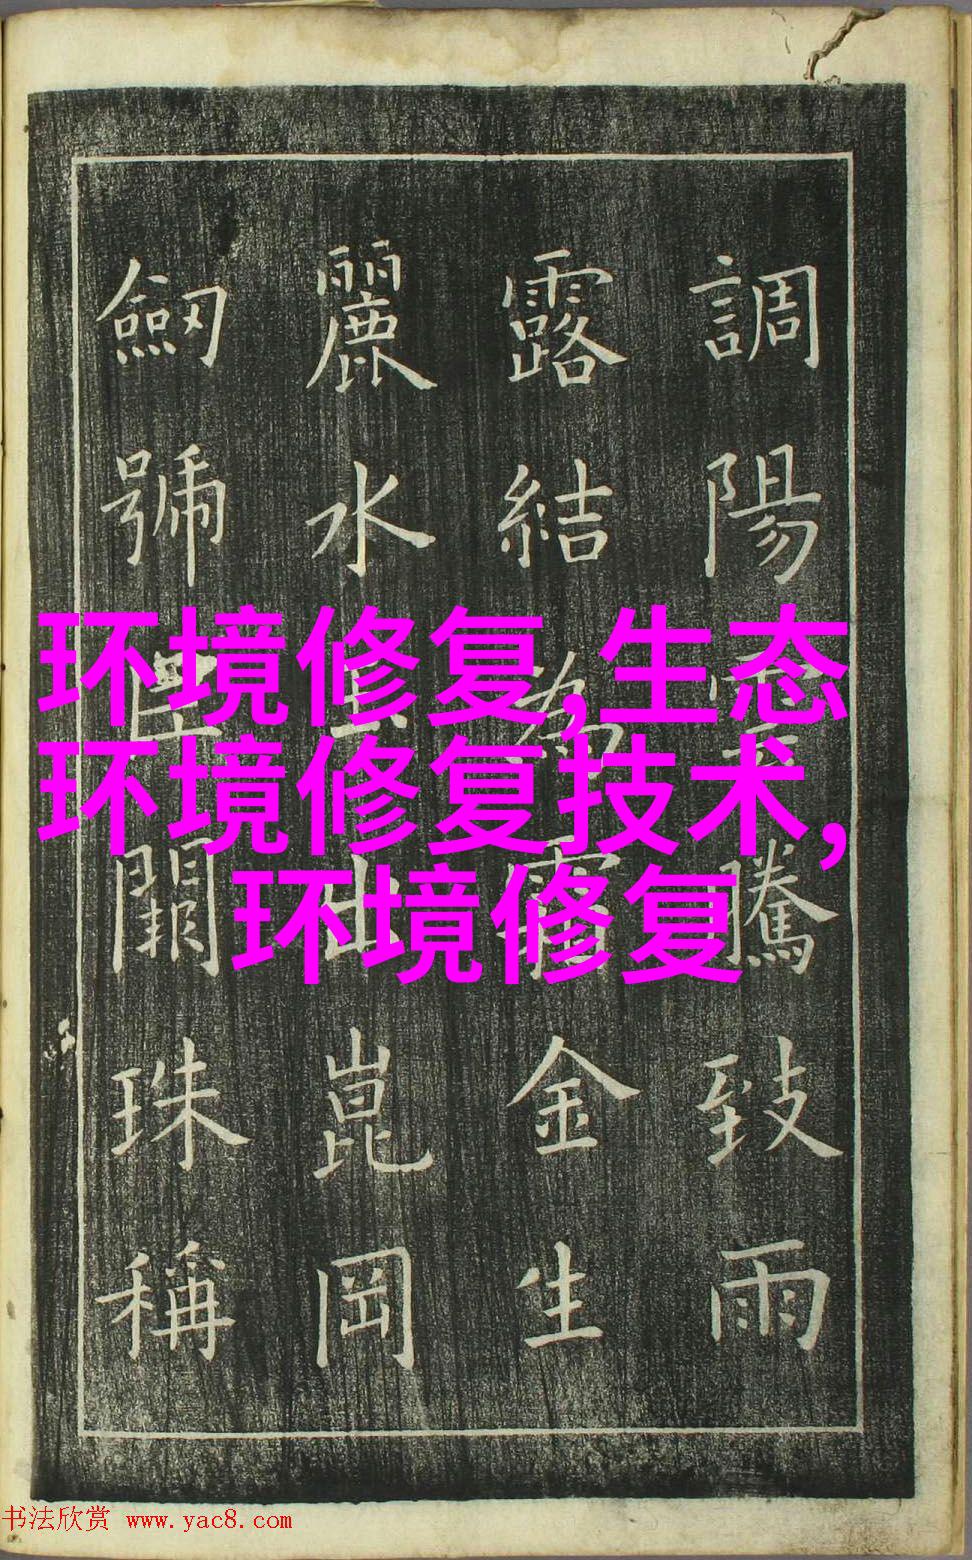 調陽騰致雨
露結金生
麗水出崑岡
劒號巨闕珠稱
环境修复,生态
环境修复技术,
环境修复
书法欣赏 www.yac8.com